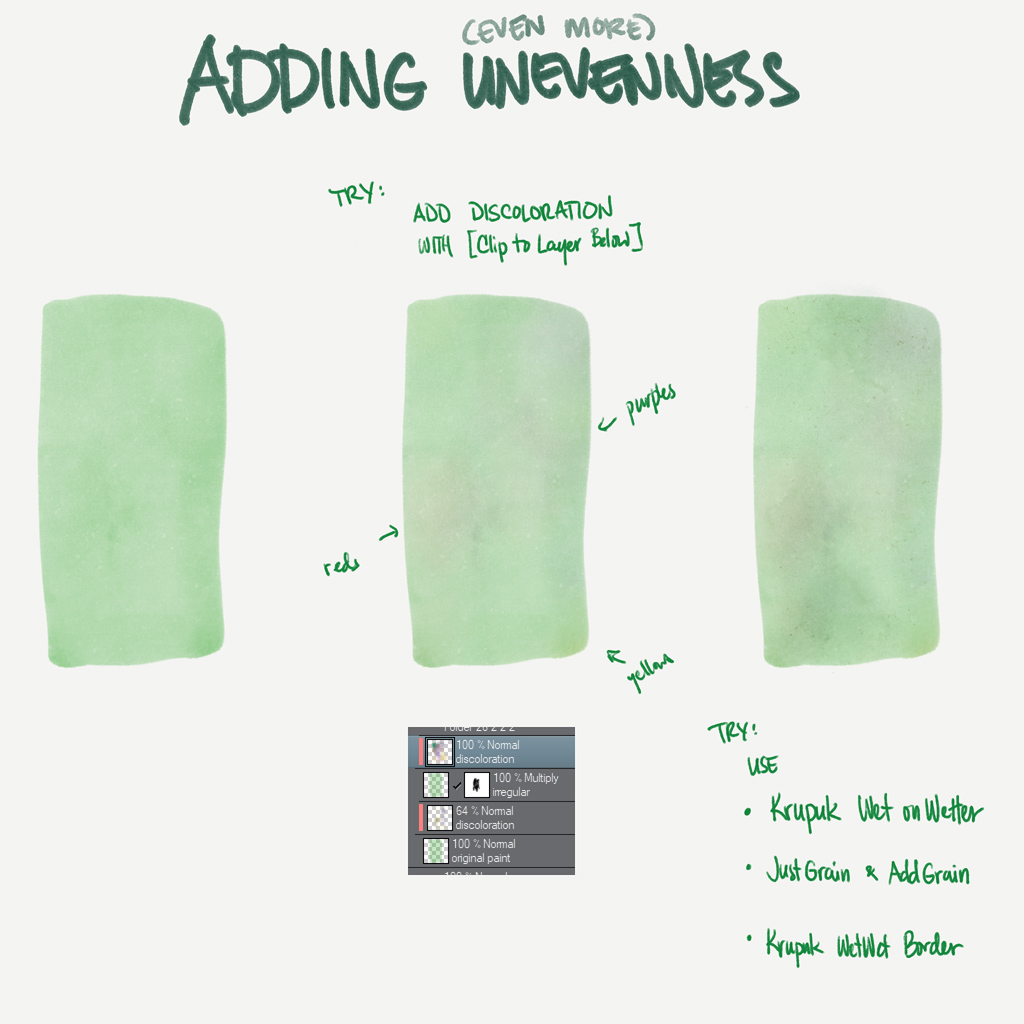 (EVEN MORE)
ADDING UNEVENNESS
TRY:
ADD DISCOLORATION
WITH [Clip to Layer Below]
purples
reds
yellows
100 % Normal
discoloration
100 % Multiply
irregular
64 % Normal
discoloration
100 % Normal
original paint
TRY:
USE
• Krupuk Wet on Wetter
• JustGrain & AddGrain
• Krupuk WetWet Border